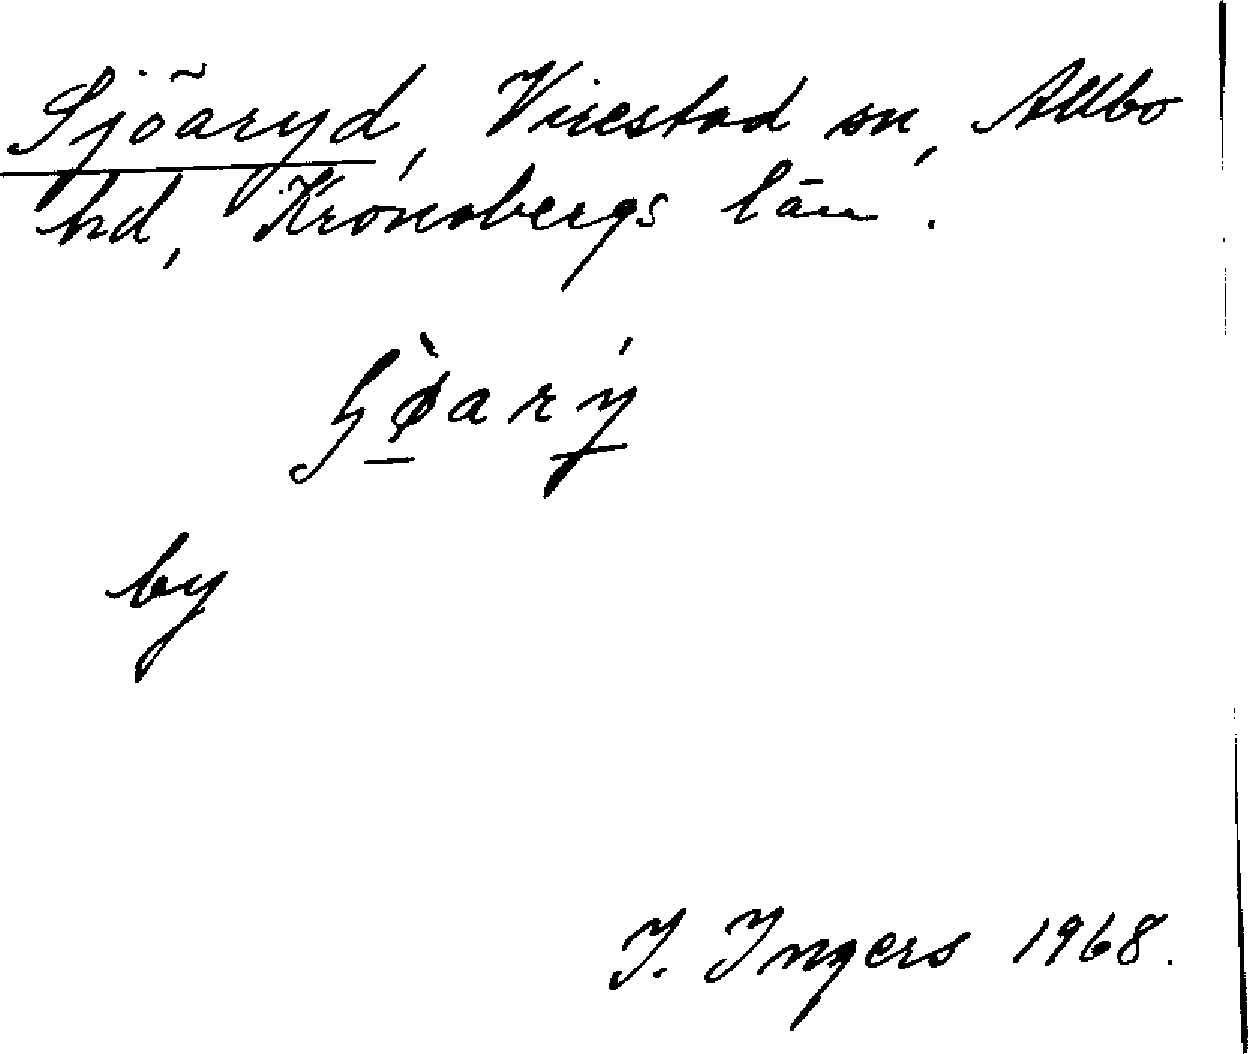 Sjöaryd, Virestad sn, Allbo
hd, Kronobergs län.
by
I. Ingers 1968.